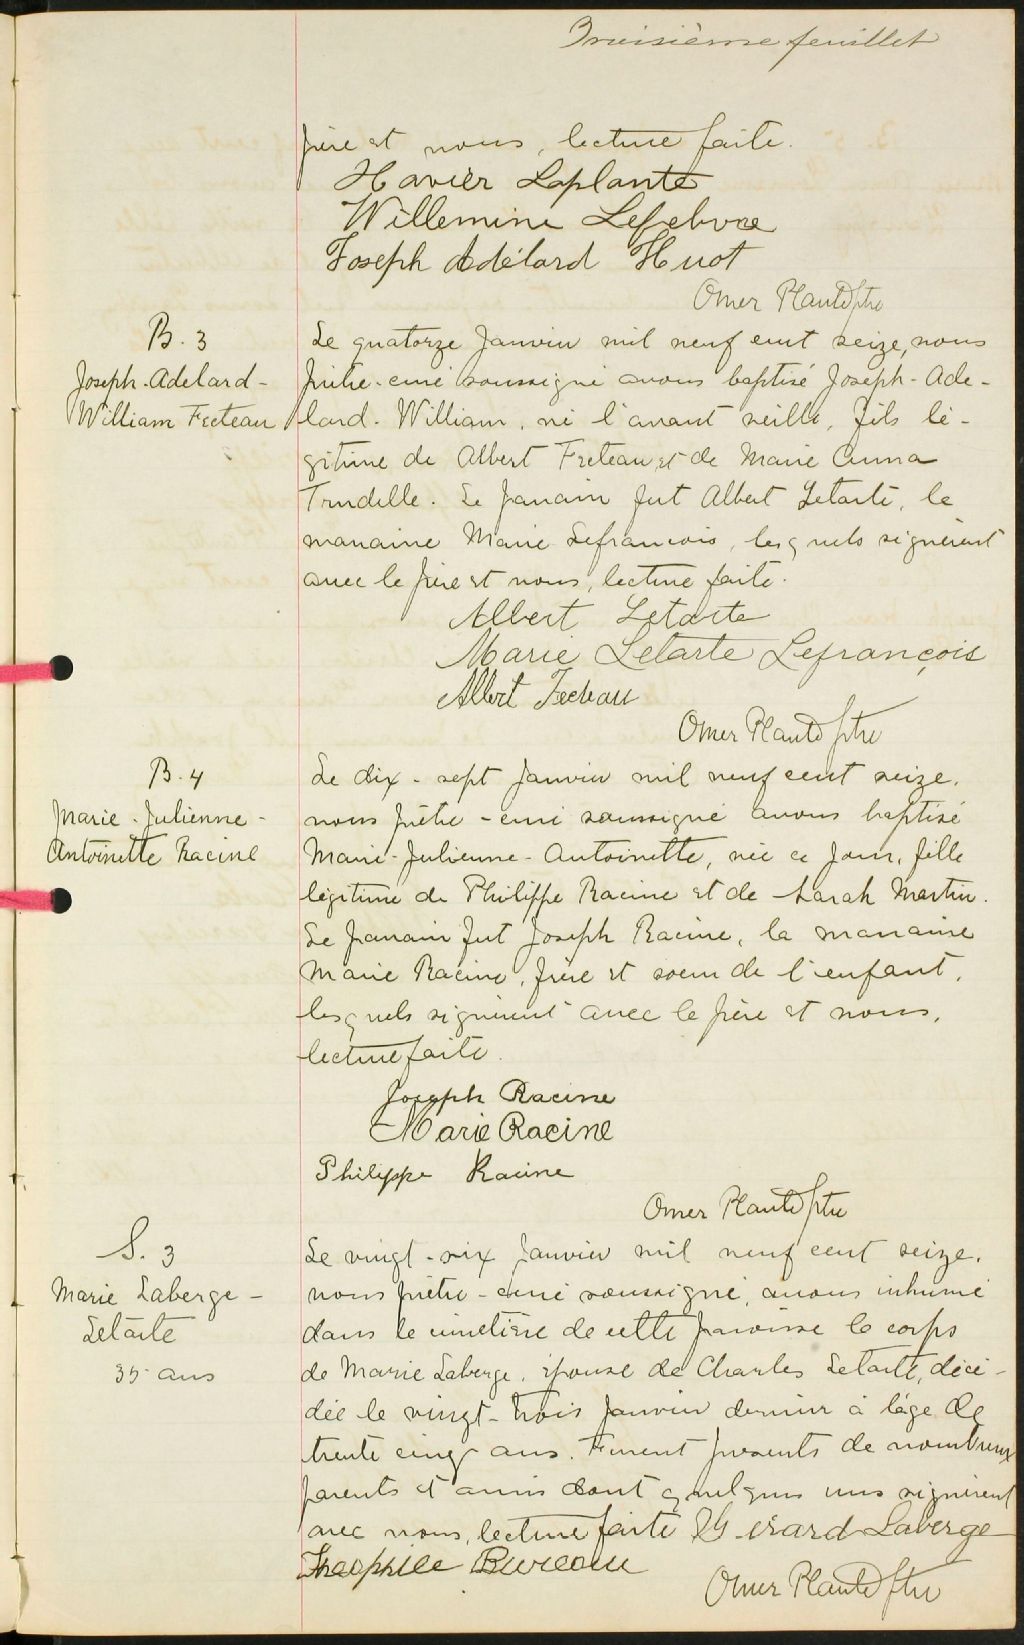 Troisième feuillet
père et nous, lecture faite.
Xavier Laplante
Willemine Lefebvre
Joseph Adélard Huot
Omer Plante ptre
B. 3
Joseph-Adelard-
William Fecteau
Le quatorze Janvier mil neuf cent seize, nous
prêtre-curé soussigné avons baptisé Joseph-Ade-
lard-William, né l'avant veille, fils lé-
gitime de Albert Fecteau et de Marie Anna
Trudelle. Le parrain fut Albert Letarte, la
marraine Marie Lefrancois, lesquels signèrent
avec le père et nous, lecture faite.
Albert Letarte
Marie Letarte Lefrançois
Albert Fecteau
Omer Plante ptre
B. 4
Marie-Julienne-
Antoinette Racine
Le dix-sept Janvier mil neuf cent seize,
nous prêtre-curé soussigné avons baptisé
Marie-Julienne-Antoinette, née ce jour, fille
légitime de Philippe Racine et de Sarah Martin.
Le parrain fut Joseph Racine, la marraine
Marie Racine, frère et soeur de l'enfant,
lesquels signèrent avec le père et nous,
lecture faite.
Joseph Racine
Marie Racine
Philippe Racine
Omer Plante ptre
S. 3
Marie Laberge-
Letarte
35 ans
Le vingt-six Janvier mil neuf cent seize,
nous prêtre-curé soussigné, avons inhumé
dans le cimetière de cette paroisse le corps
de Marie Laberge, épouse de Charles Letarte, décé-
dée le vingt-trois Janvier dernier à l'âge de
trente cinq ans. Furent présents de nombreux
parents et amis dont quelques uns signèrent
avec nous, lecture faite Gérard Laberge
Théophile Bureau
Omer Plante ptre